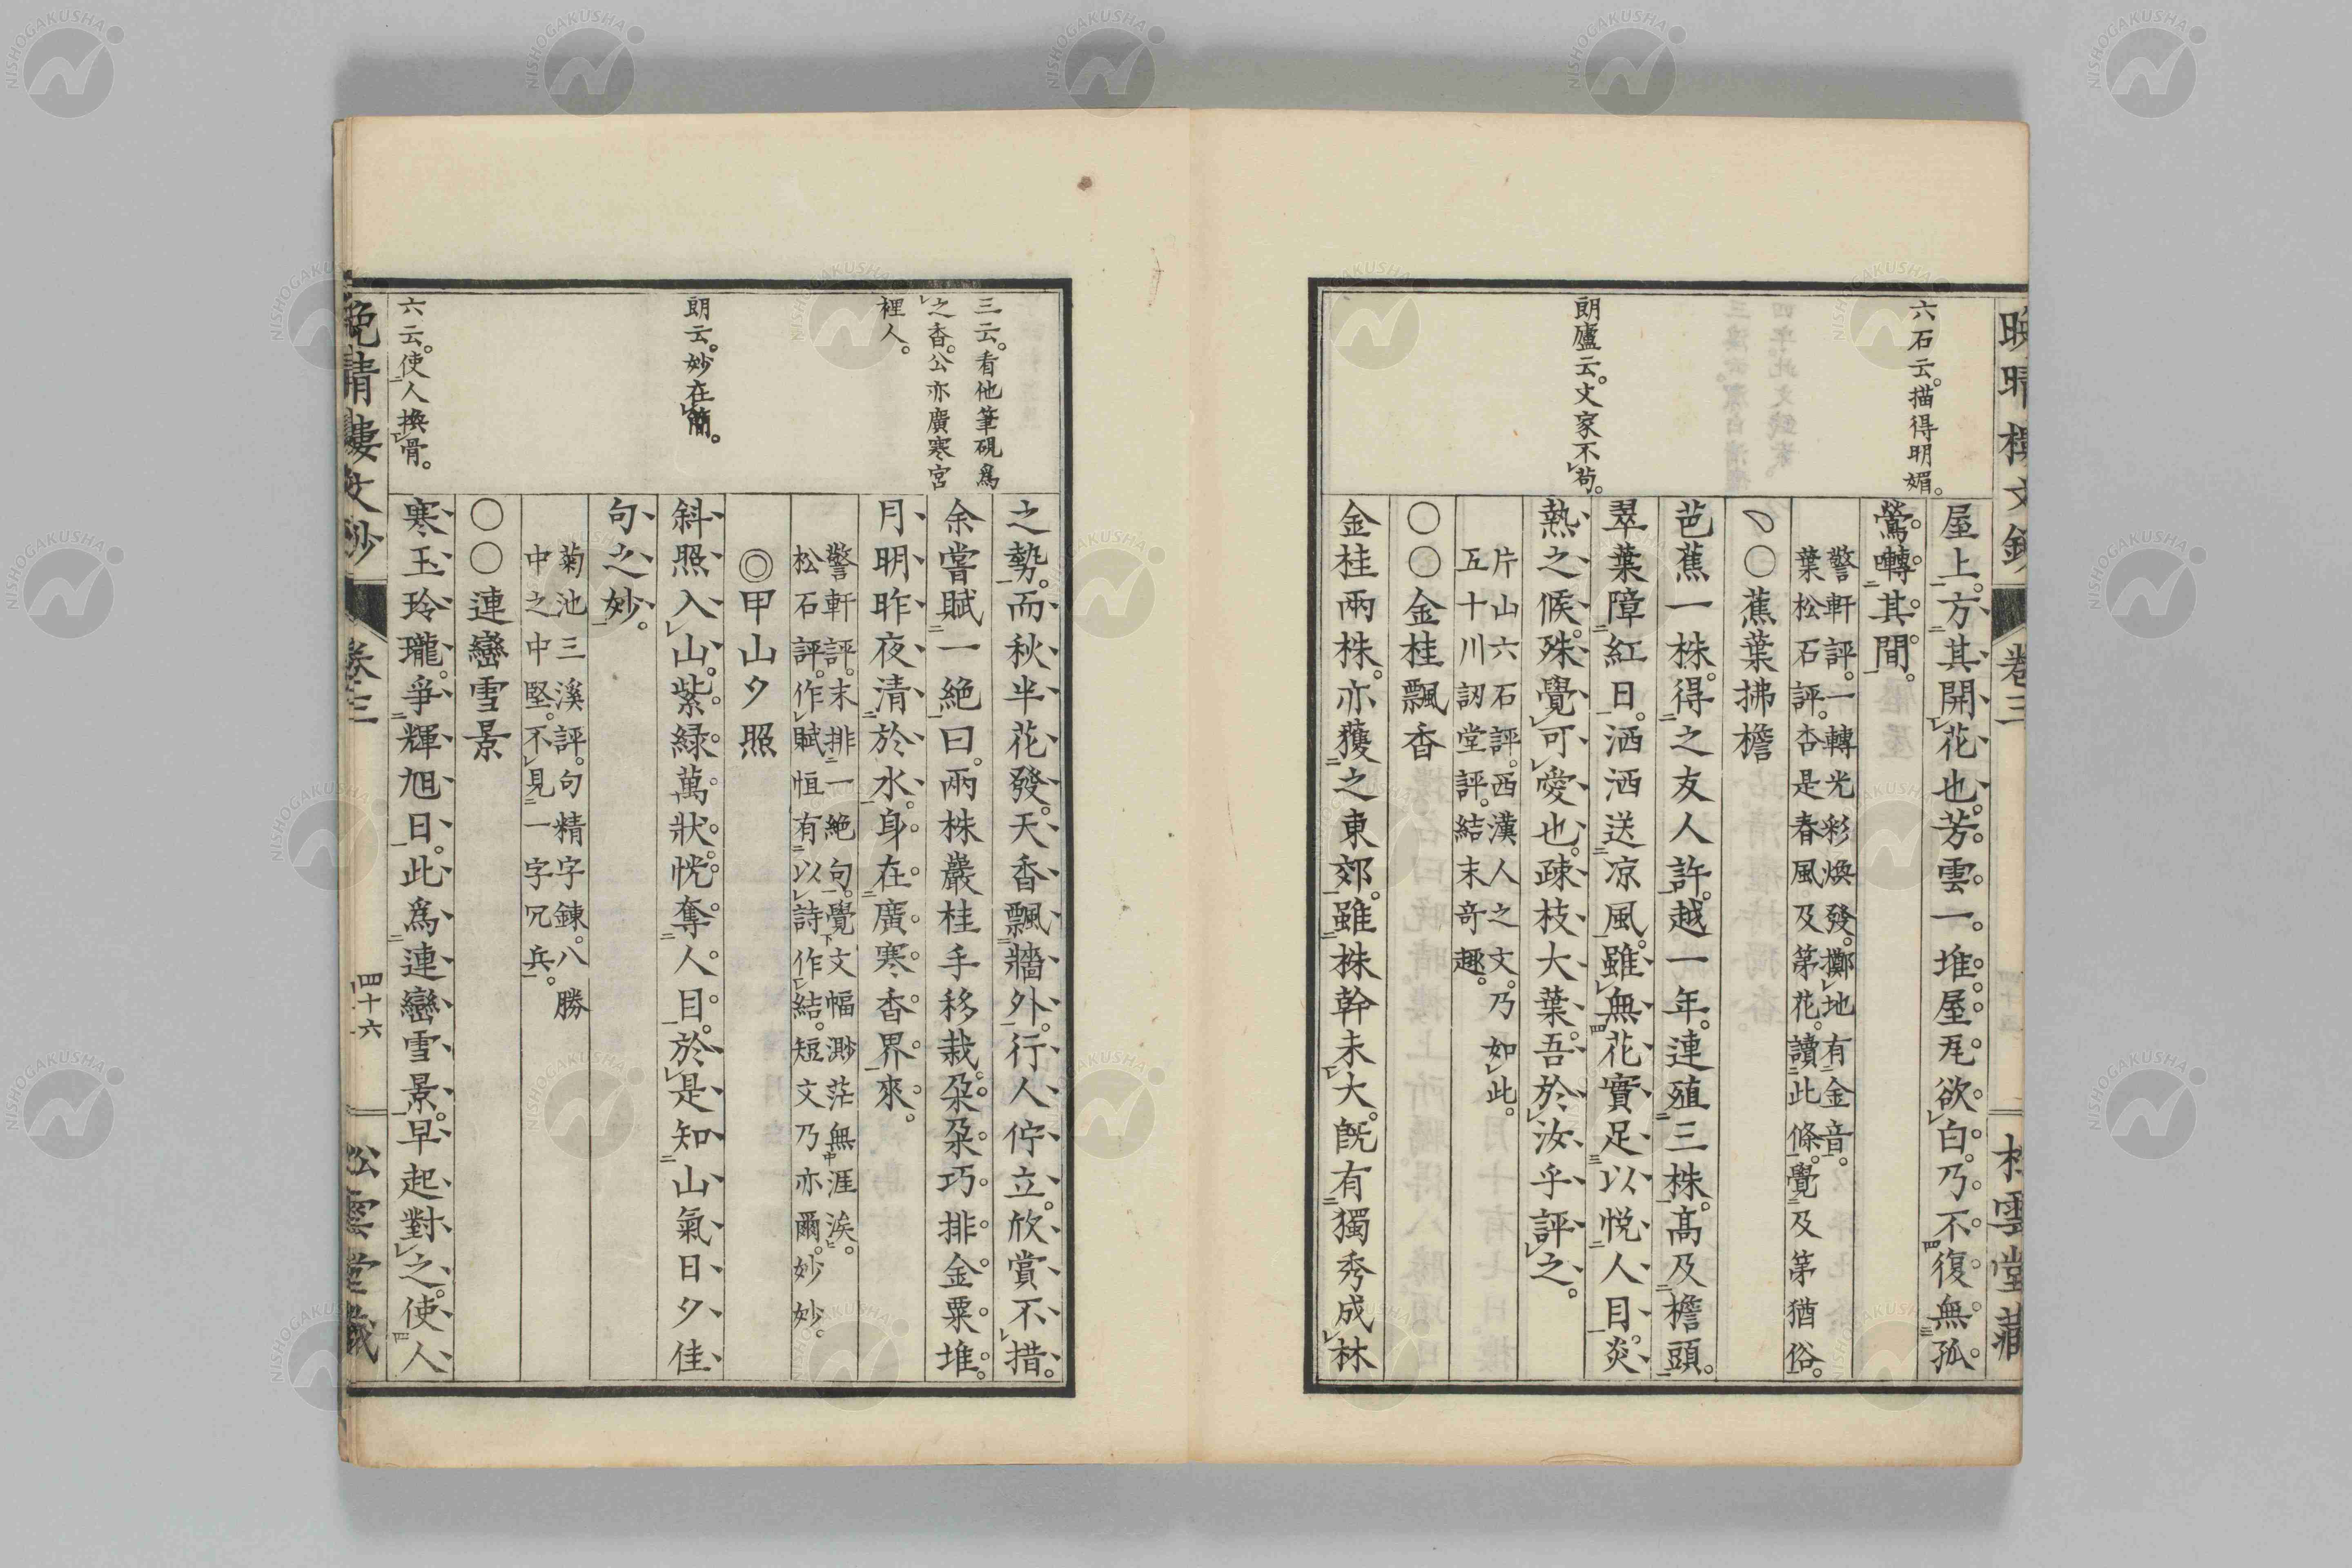 六石云。描得明媚。
屋上。方其開花也。芳雲一堆。屋瓦欲白。乃不復無孤
鶯囀其間。
警軒評。一轉光彩煥發。擲地有金音。
葉松石評。杏是春風及第花。讀此條。覺及第猶俗。
○蕉葉拂檐
芭蕉一株。得之友人許。越一年。連殖三株。高及檐頭。
朗廬云。文家不苟。
翠葉障紅日。洒洒送凉風。雖無花實足以悅人目。炎
熱之候。殊覺可愛也。疎枝大葉。吾於汝乎評之。
片山六石評。西漢人之文。乃如此。
五十川訒堂評。結末奇趣。
○○金桂飄香
金桂兩株。亦獲之東郊。雖株幹未大。旣有獨秀成林
卷三
之勢。而秋半花發。天香飄牆外。行人佇立。欣賞不措。
三云。看他筆硯爲
之香。公亦廣寒宮
裡人。
余嘗賦一絶曰。兩株巖桂手移栽。朶朶巧排金粟堆。
月明昨夜清於水。身在廣寒香界來。
警軒評。末排一絶句。覺文幅渺茫無涯涘。
松石評。作賦恒有以詩作結。短文乃亦爾。妙妙。
◎甲山夕照
朗云。妙在簡。
斜照入山。紫緑萬狀。恍奪人目。於是知山氣日夕佳
句之妙。
菊池三溪評。句精字鍊。八勝
中之中堅。不見一字冗兵。
○○連巒雪景
六云。使人換骨。
寒玉玲瓏。爭輝旭日。此爲連巒雪景。早起對之。使人
晚晴樓文鈔
卷三
四十六
松雲堂藏